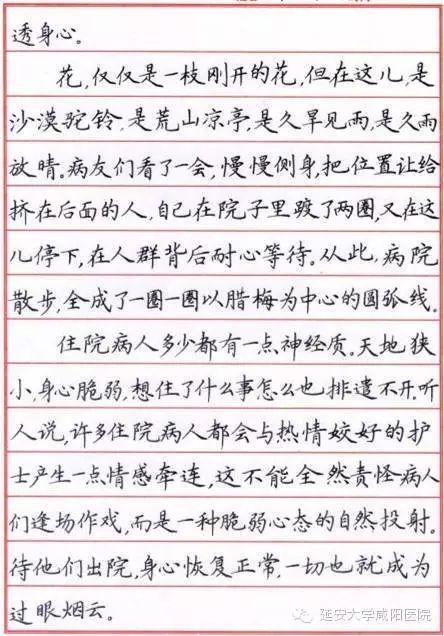 透身心。
花,仅仅是一枝刚开的花,但在这儿,是
沙漠驼铃,是荒山凉亭,是久旱见雨,是久雨
放晴。病友们看了一会,慢慢侧身,把位置让给
挤在后面的人,自己在院子里踱了两圈,又在这
儿停下,在人群背后耐心等待。从此,病院
散步,全成了一圈一圈以腊梅为中心的圆弧线。
住院病人多少都有一点神经质。天地狭
小,身心脆弱,想住了什么事怎么也排遣不开,听
人说,许多住院病人都会与热情姣好的护
士产生一点情感牵连,这不能全然责怪病人
们逢场作戏,而是一种脆弱心态的自然投射。
待他们出院,身心恢复正常,一切也就成为
过眼烟云。
延安大学咸阳医院